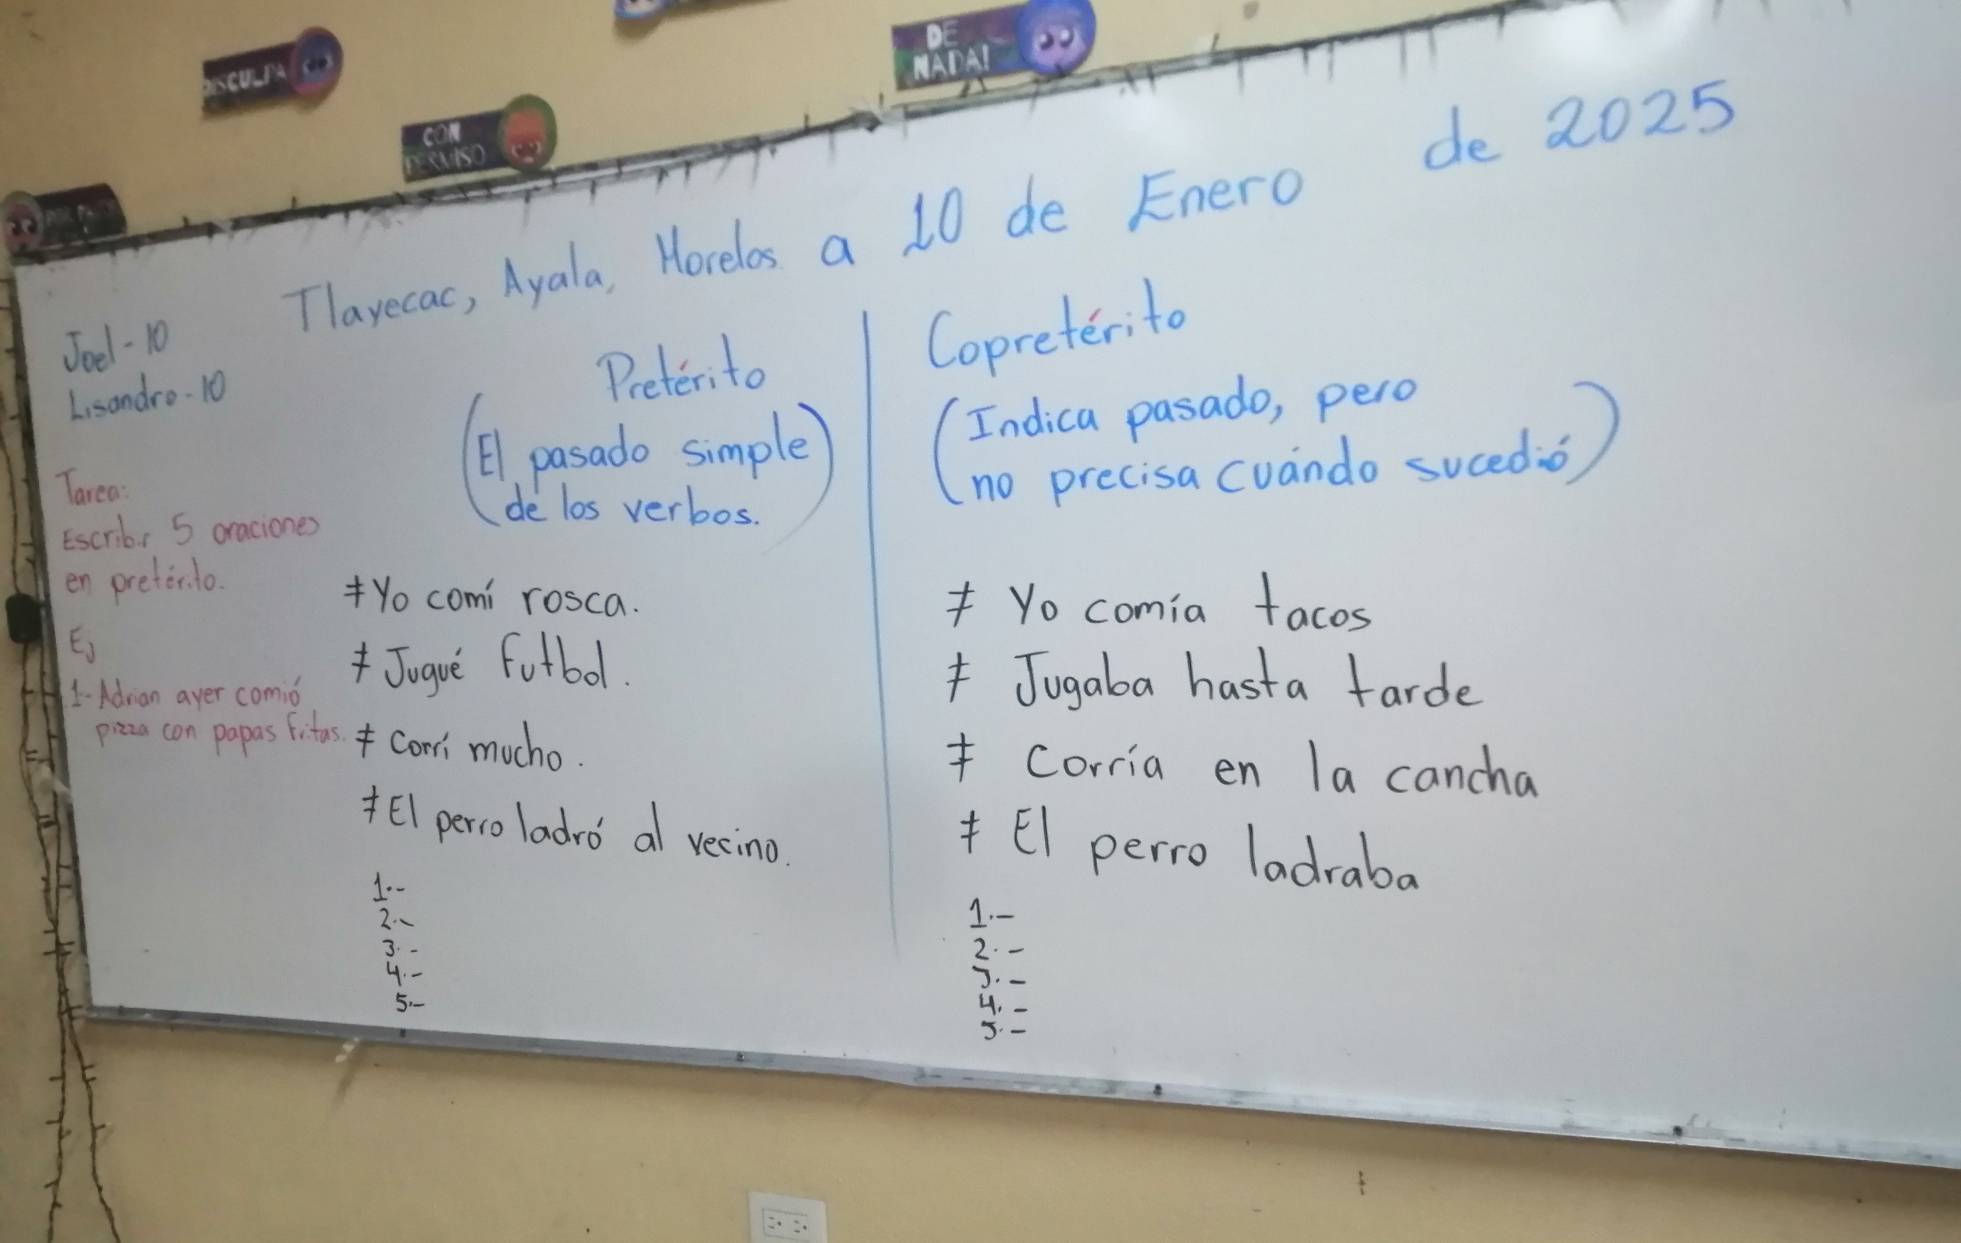 DISCULPA
CON
PERMISO
DE
NADA!
Tlayecac, Ayala, Morelos a 10 de Enero de 2025
Joel-10
Lisandro-10
Tarea:
Escribir 5 oraciones
en pretérito.
Ej
1- Adrian ayer comió
pizza con papas fritas.
Pretérito
(El pasado simple
de los verbos.)
‡ Yo comí rosca.
‡ Jugué futbol.
‡ Corrí mucho.
‡ El perro ladró al vecino.
1.-
2.-
3.-
4.-
5.-
Copretérito
(Indica pasado, pero
no precisa cuándo sucedió)
‡ Yo comía tacos
‡ Jugaba hasta tarde
‡ Corría en la cancha
‡ El perro ladraba
1.-
2.-
3.-
4.-
5.-